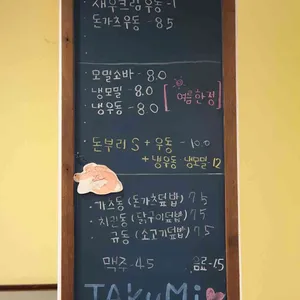 새우크림우동 -1
돈가츠우동 - 8.5
모밀소바 - 8.0
냉모밀 - 8.0
냉우동 - 8.0
[여름한정]
돈부리 S + 우동 - 10.0
+ 냉우동 냉모밀 12
가츠동 (돈가츠덮밥) 7.5
치킨동 (닭구이덮밥) 7.5
규동 (소고기덮밥) 7.5
맥주 - 4.5 음료 - 1.5
TAKUMI